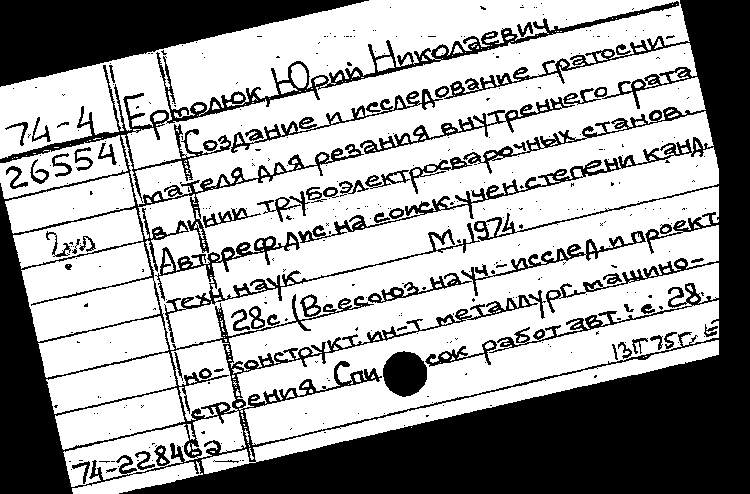 Ермолюк, Юрий Николаевич.
74-4
26554
Создание и исследование гратосни-
мателя для резания внутреннего грата
в линии трубоэлектросварочных станов.
Автореф. дис. на соиск. учен. степени канд.
техн. наук. М., 1974.
28с. (Всесоюз. науч.-исслед. и проект-
но-конструкт. ин-т металлург. машино-
строения. Список работ авт.: с. 28.
74-22846а